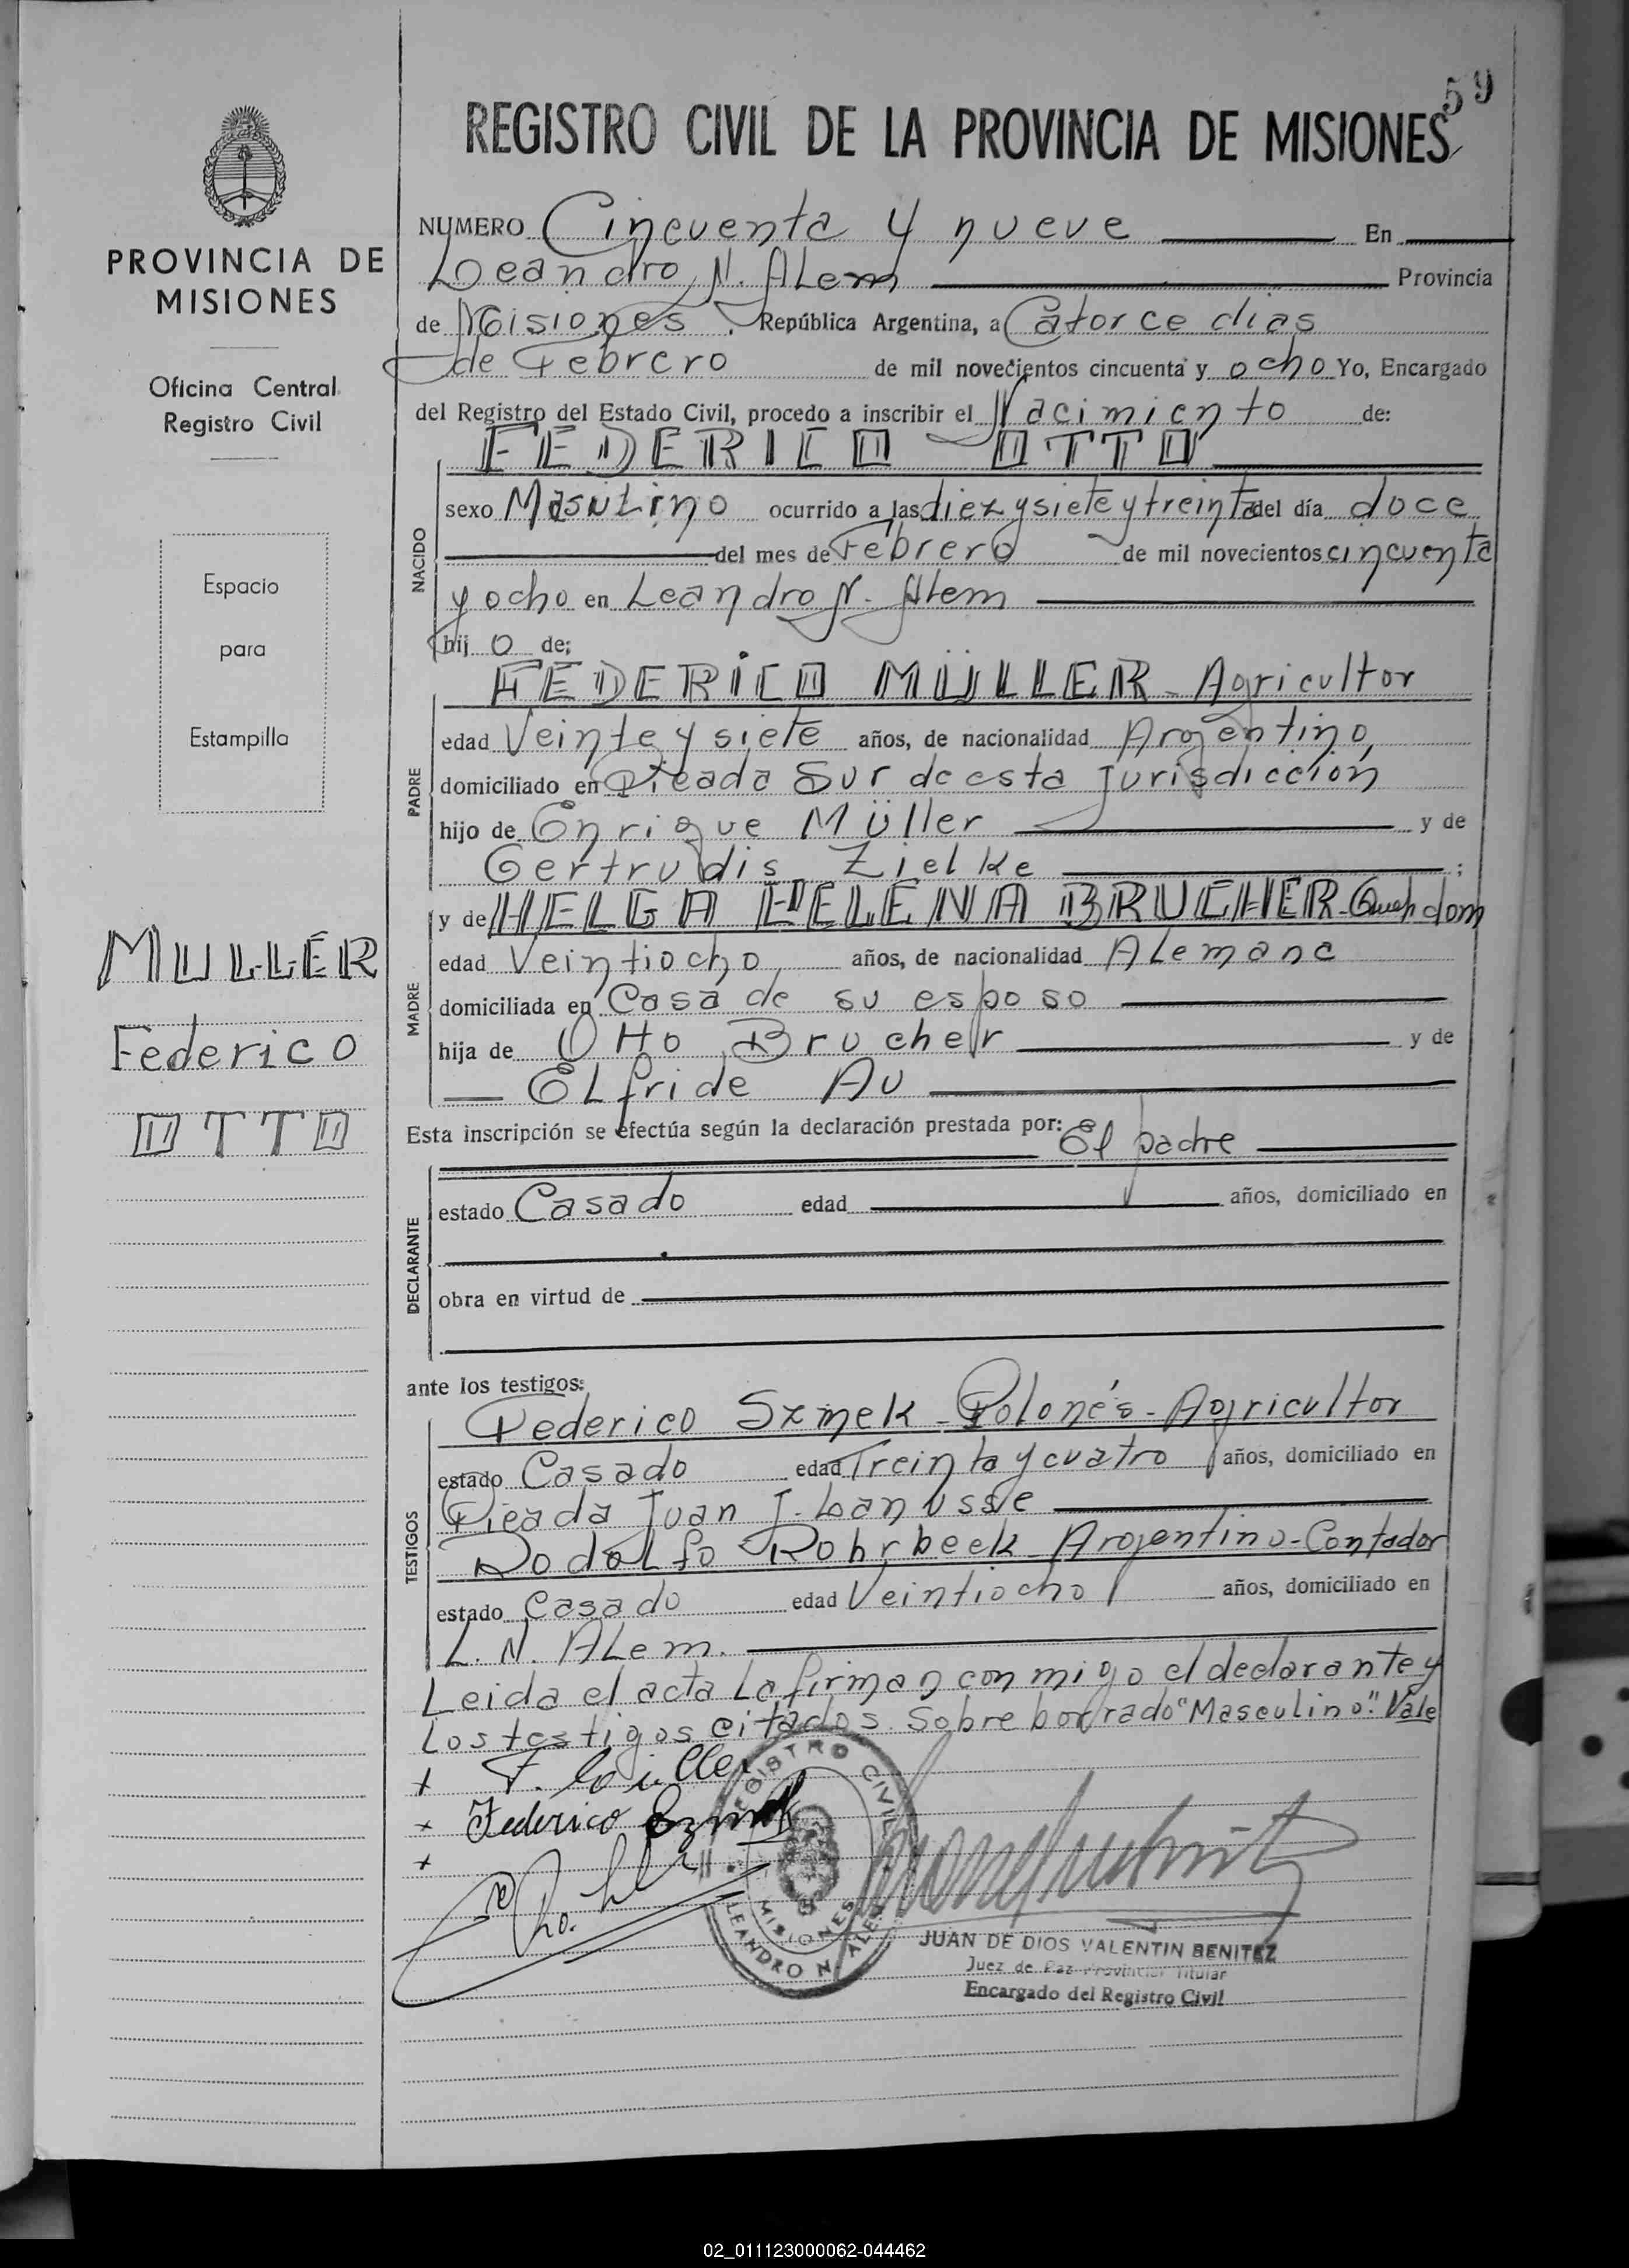 59
REGISTRO CIVIL DE LA PROVINCIA DE MISIONES
PROVINCIA DE
MISIONES
Oficina Central
Registro Civil
Espacio
para
Estampilla
MULLER
Federico
OTTO
NUMERO Cincuenta y nueve En
Leandro N. Alem Provincia
de Misiones, República Argentina, a Catorce dias
de Febrero de mil novecientos cincuenta y ocho Yo, Encargado
del Registro del Estado Civil, procedo a inscribir el Nacimiento de:
FEDERICO OTTO
NACIDO
sexo Masculino ocurrido a las diez y siete y treinta del día doce
del mes de Febrero de mil novecientos cincuenta
y ocho en Leandro N. Alem
hijo de:
PADRE
FEDERICO MÜLLER - Agricultor
edad Veinte y siete años, de nacionalidad Argentino,
domiciliado en Picada Sur de esta Jurisdiccion
hijo de Enrique Müller y de
Gertrudis Zielke ;
MADRE
y de HELGA HELENA BRUCHER - Queh dom
edad Veintiocho, años, de nacionalidad Alemana
domiciliada en Casa de su esposo
hija de Otto Brucher y de
Elfride Au
Esta inscripción se efectúa según la declaración prestada por: El padre
DECLARANTE
estado Casado edad años, domiciliado en
obra en virtud de
ante los testigos:
TESTIGOS
Federico Szmek - Polonés - Agricultor
estado Casado edad Treinta y cuatro años, domiciliado en
Picada Juan J. Lanusse
Rodolfo Rohrbeck - Argentino - Contador
estado Casado edad Veintiocho años, domiciliado en
L. N. Alem.
Leida el acta La firman con migo el declarante y
Los testigos citados. Sobre borrado "Masculino". Vale
F. Müller
Federico Szmek
REGISTRO CIVIL
MISIONES
LEANDRO N. ALEM
JUAN DE DIOS VALENTIN BENITEZ
Juez de Paz Provincial Titular
Encargado del Registro Civil
02_011123000062-044462